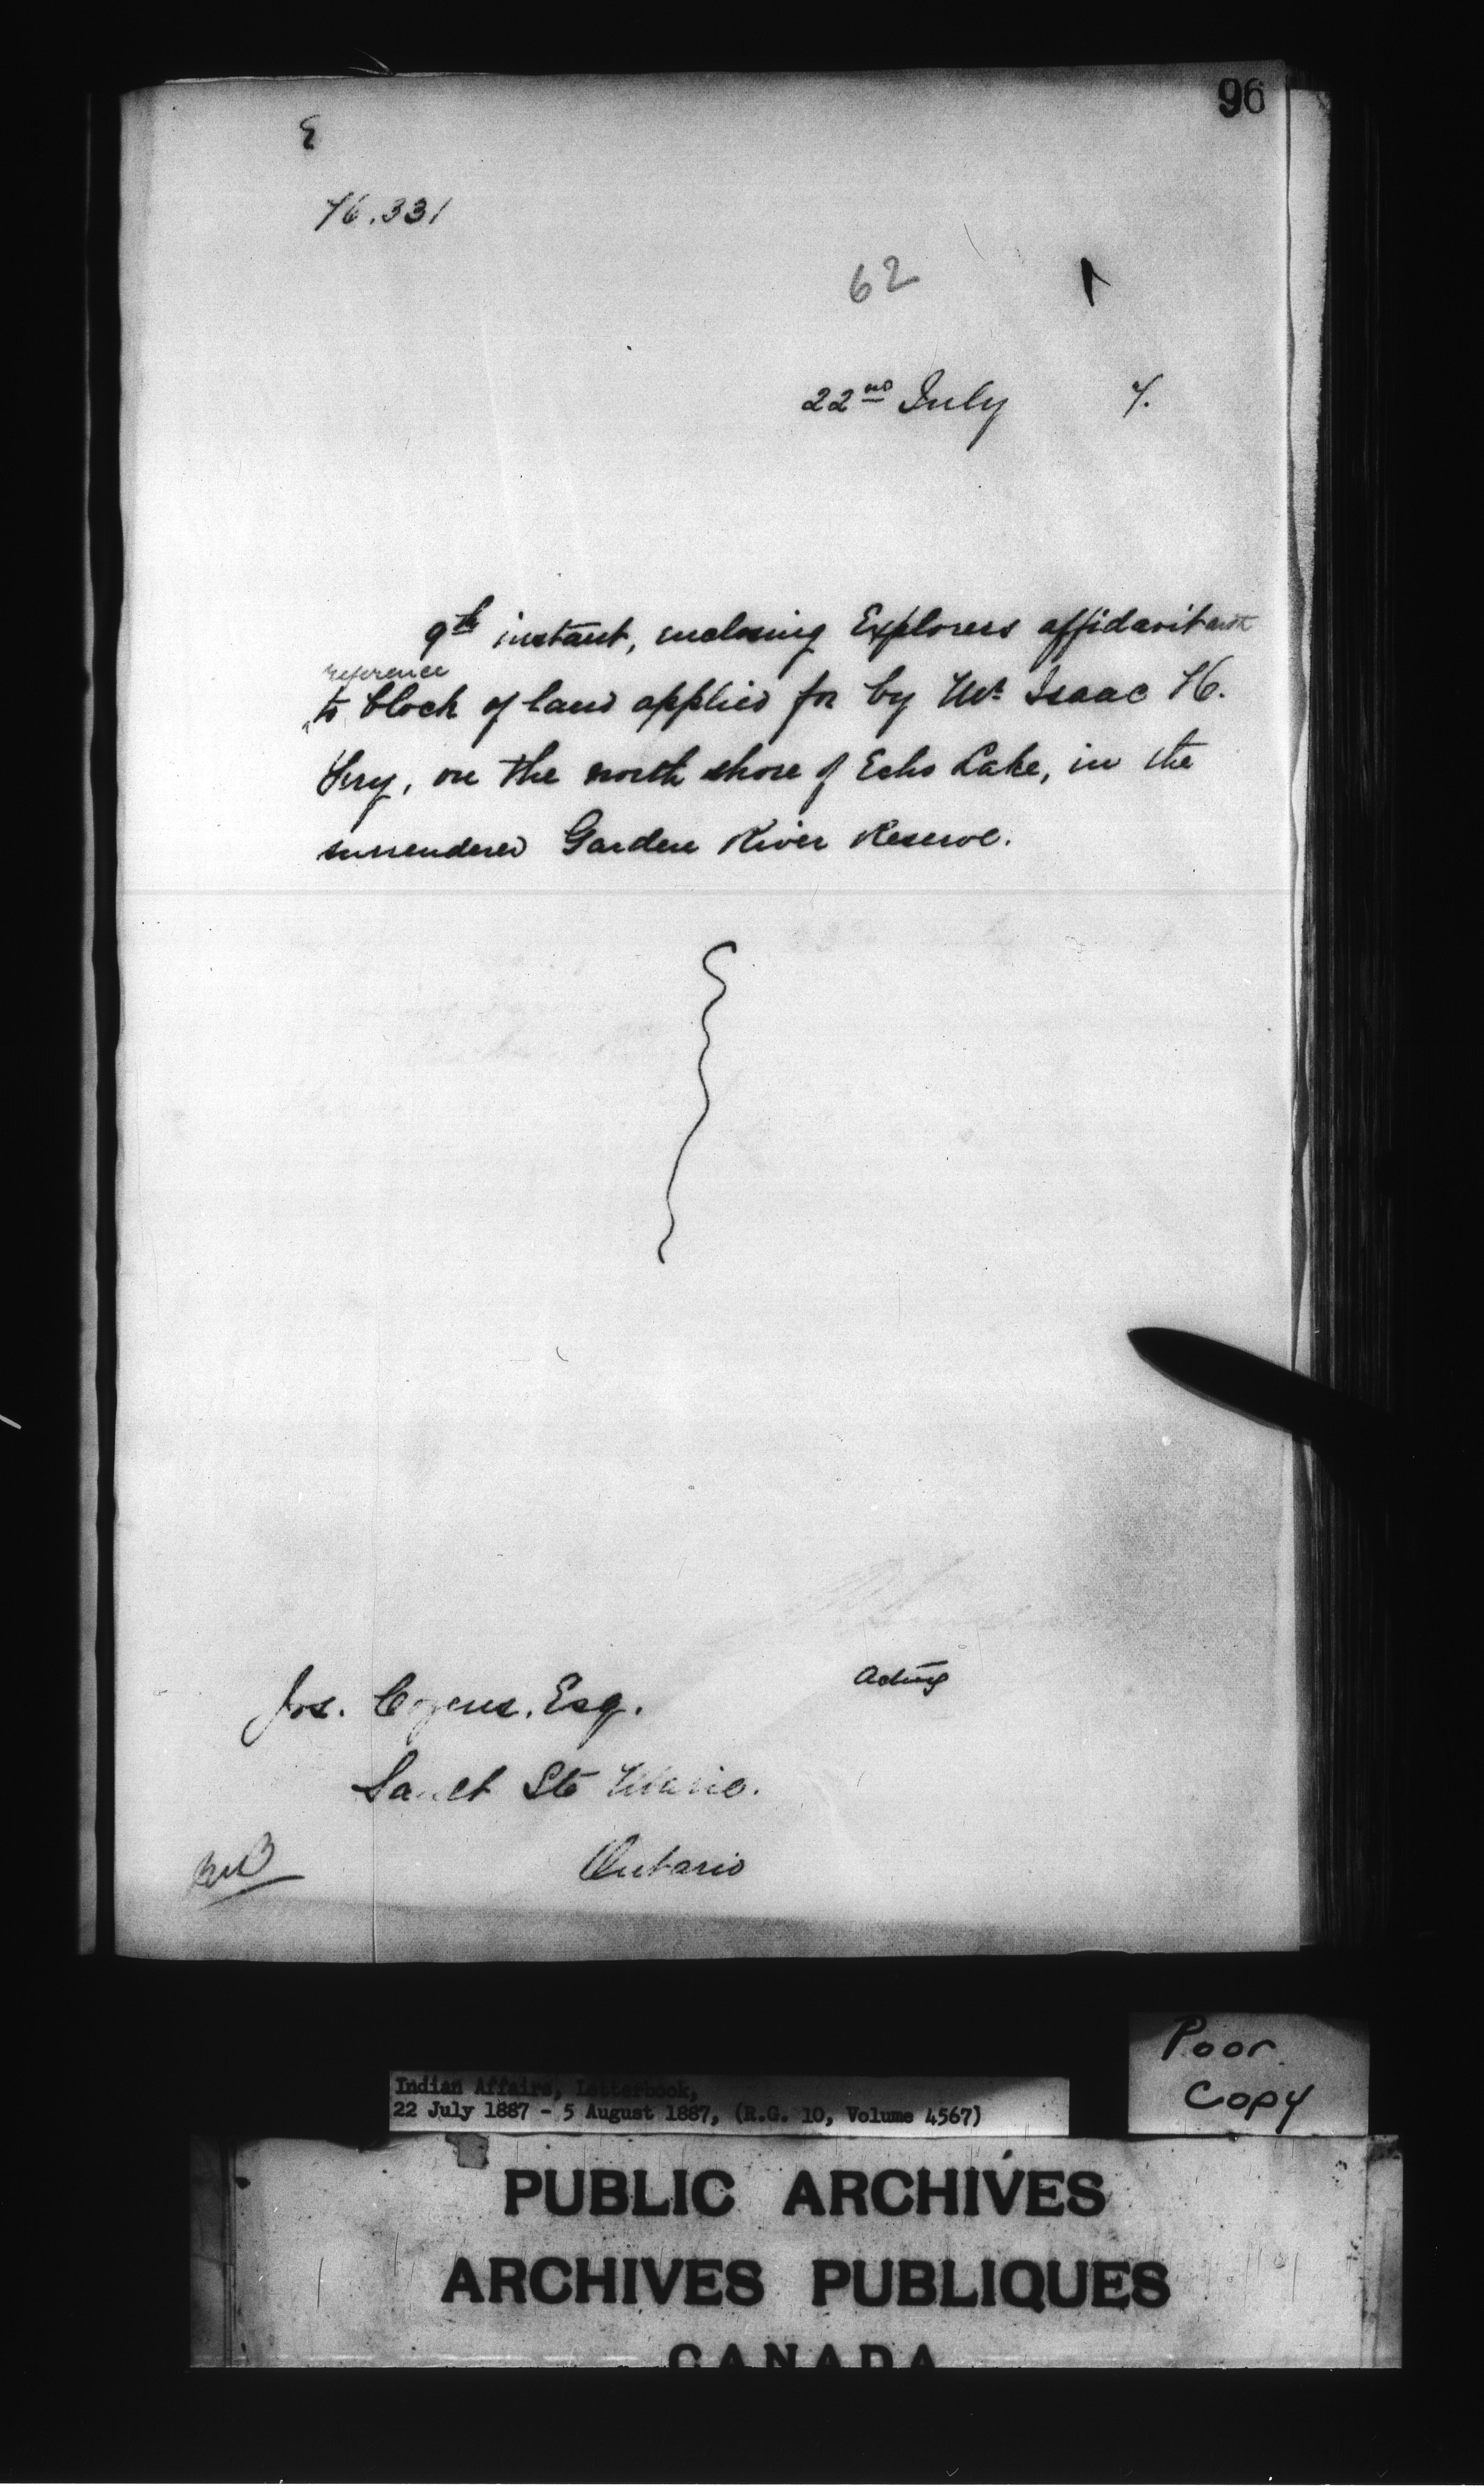 96
E
76.331
62
22nd July 7.
9th instant, enclosing Explorers affidavit with
reference
to block of land applied for by Mr. Isaac H.
on the north shore of Echo Lake, in the
surrendered Garden River Reserve.
Acting
Jos. Cozens, Esq.
Sault Ste Marie.
Ontario
Poor
Copy
Indian Affairs, Letterbook,
22 July 1887 - 5 August 1887, (R.G. 10, Volume 4567)
PUBLIC ARCHIVES
ARCHIVES PUBLIQUES
CANADA